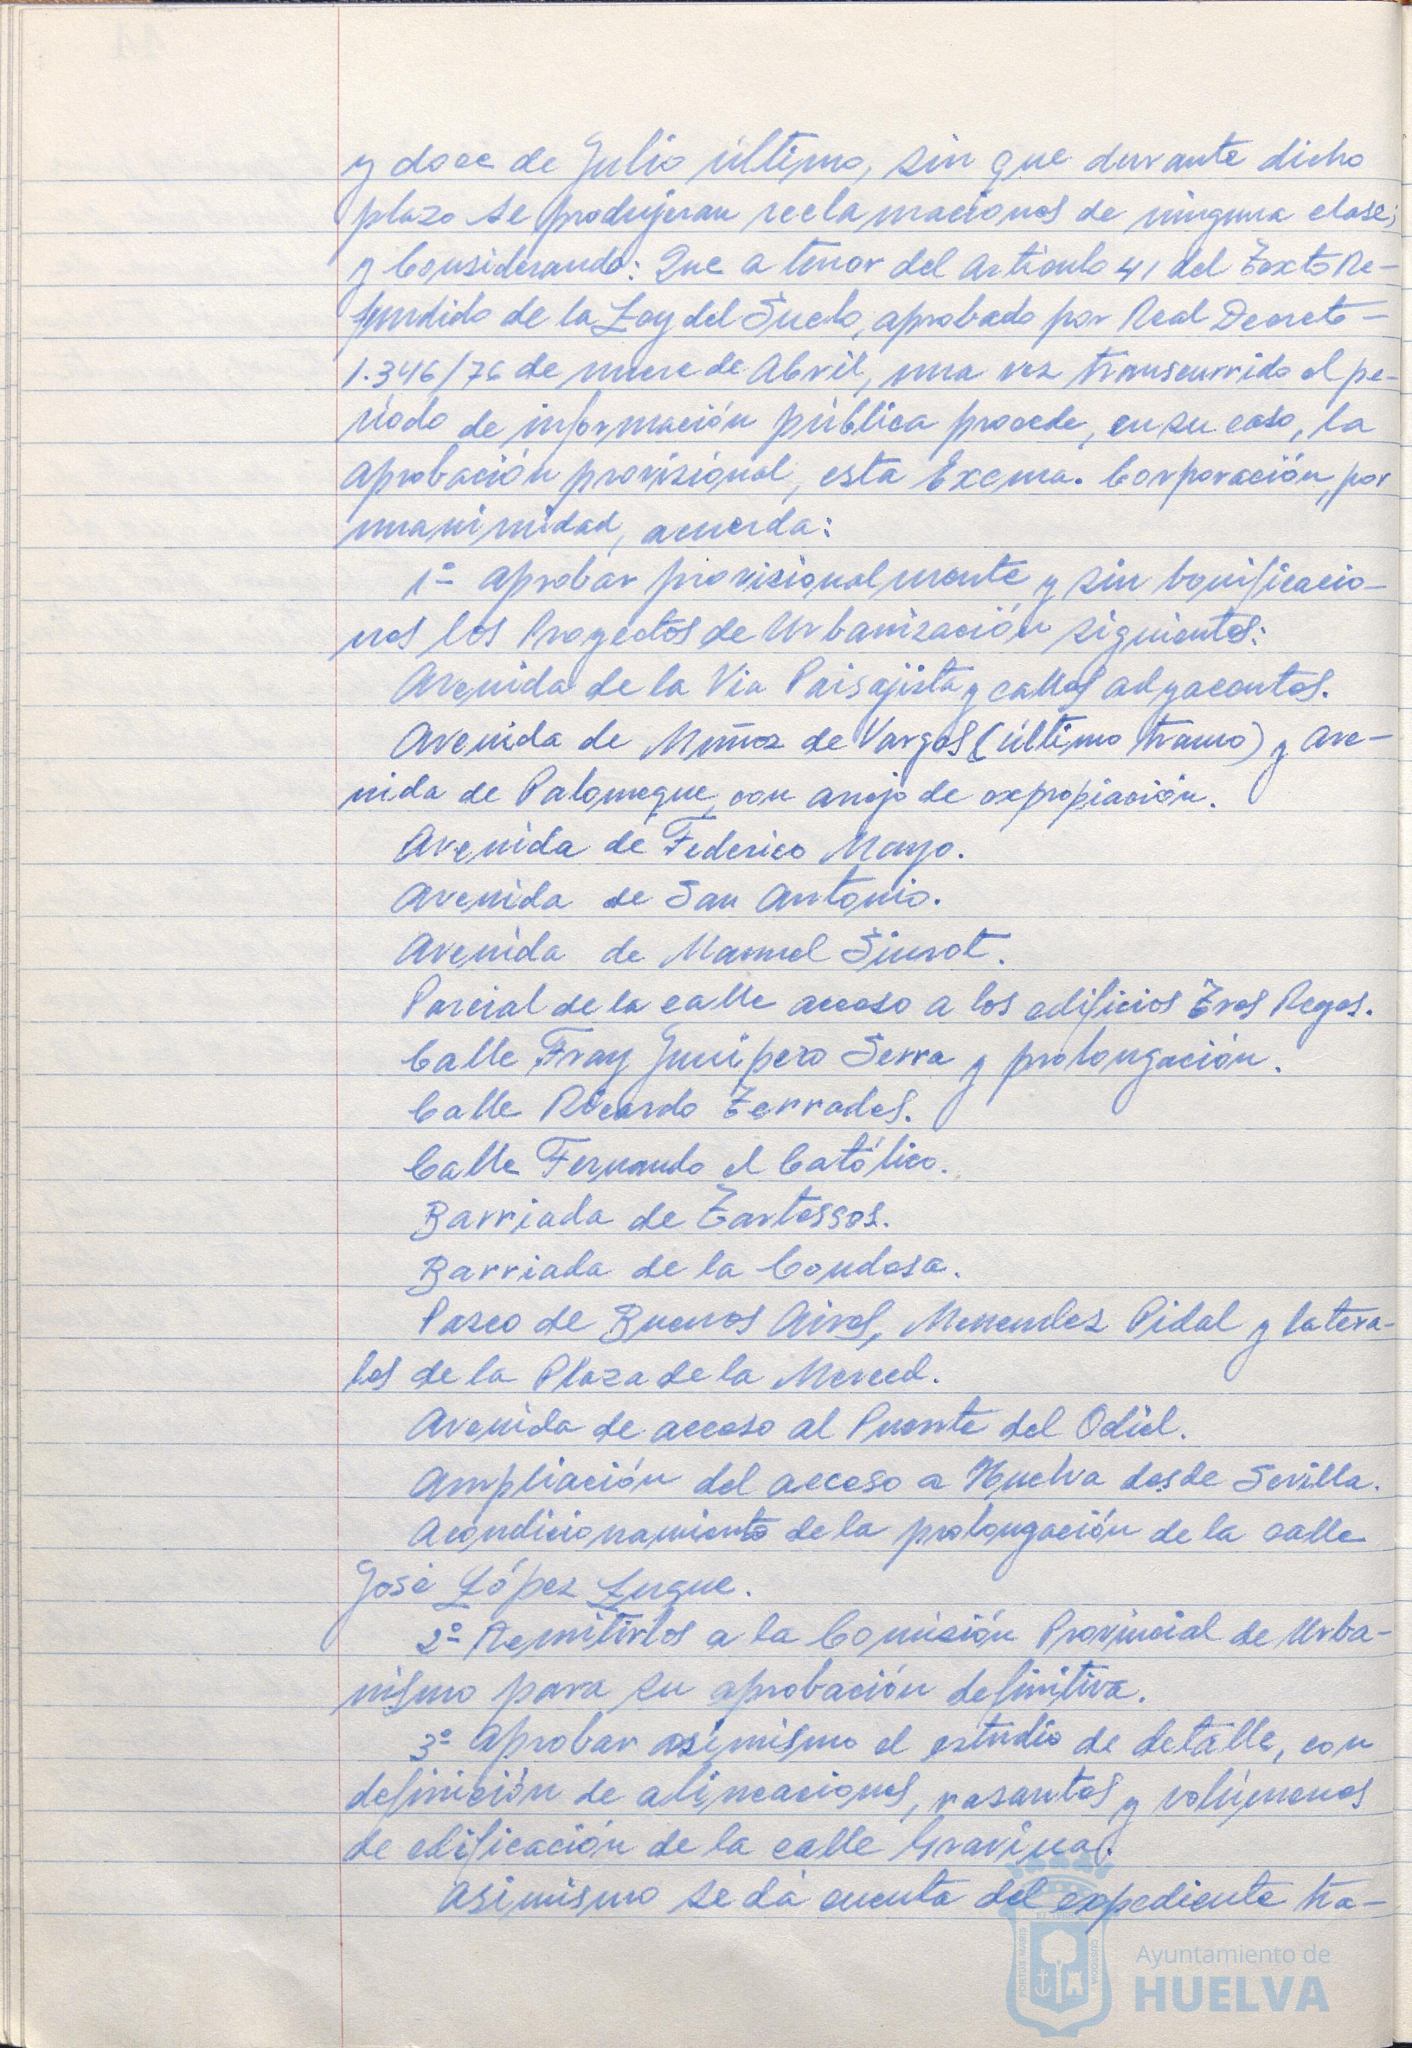 y doce de Julio último, sin que durante dicho
plazo se produjeran reclamaciones de ninguna clase;
y Considerando: Que a tenor del Artículo 41 del Texto Re-
fundido de la Ley del Suelo, aprobado por Real Decreto -
1.346/76 de nueve de Abril, una vez transcurrido el pe-
riodo de información pública procede, en su caso, la
aprobación provisional, esta Excma. Corporación, por
unanimidad, acuerda:
1º Aprobar provisionalmente y sin bonificacio-
nes los Proyectos de Urbanización siguientes:
Avenida de la Via Paisajista y calles adyacentes.
Avenida de Muñoz de Vargas (último tramo) y Ave-
nida de Palomeque, con anejo de expropiación.
Avenida de Federico Mayo.
Avenida de San Antonio.
Avenida de Manuel Siurot.
Parcial de la calle acceso a los edificios Tres Reyes.
Calle Fray Junipero Serra y prolongación.
Calle Ricardo Terrades.
Calle Fernando el Católico.
Barriada de Tartessos.
Barriada de la Condesa.
Paseo de Buenos Aires, Menendez Pidal y latera-
les de la Plaza de la Merced.
Avenida de acceso al Puente del Odiel.
Ampliación del acceso a Huelva desde Sevilla.
Acondicionamiento de la prolongación de la calle
José López Luque.
2º Remitirlos a la Comisión Provincial de Urba-
nismo para su aprobación definitiva.
3º Aprobar asimismo el estudio de detalle, con
definición de alineaciones, rasantes y volúmenes
de edificación de la calle Gravina.
Asimismo se dá cuenta del expediente tra-
Ayuntamiento de
HUELVA